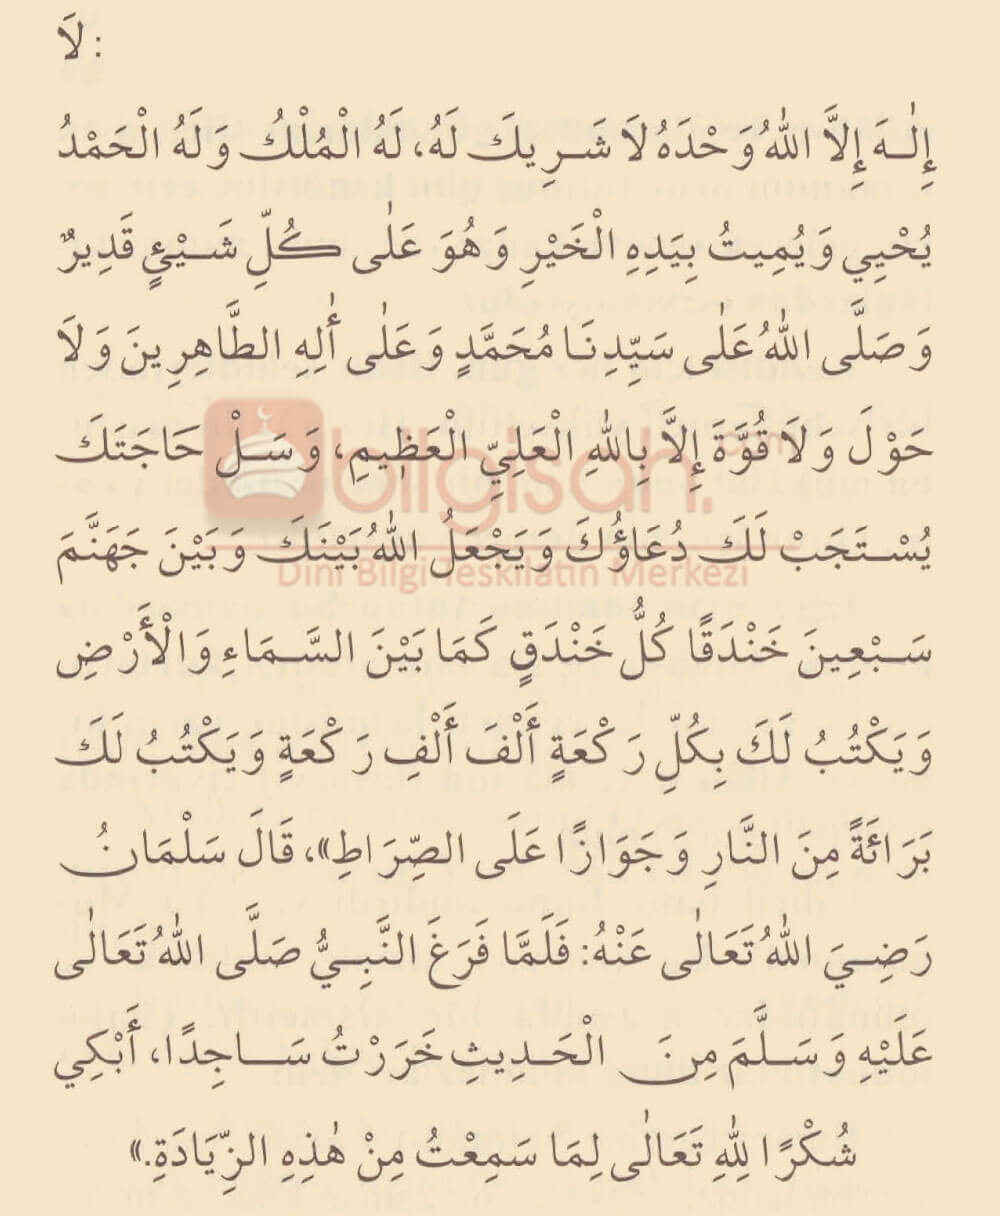 : لَا
إِلٰهَ إِلَّا اللّٰهُ وَحْدَهُ لَا شَرِيكَ لَهُ، لَهُ الْمُلْكُ وَلَهُ الْحَمْدُ
يُحْيِي وَيُمِيتُ بِيَدِهِ الْخَيْرِ وَهُوَ عَلٰى كُلِّ شَيْئٍ قَدِيرٌ
وَصَلَّى اللّٰهُ عَلٰى سَيِّدِنَا مُحَمَّدٍ وَعَلٰى أٰلِهِ الطَّاهِرِينَ وَلَا
حَوْلَ وَلَا قُوَّةَ إِلَّا بِاللّٰهِ الْعَلِيِّ الْعَظِيمِ، وَسَلْ حَاجَتَكَ
bilgisah.com
يُسْتَجَبْ لَكَ دُعَاؤُكَ وَيَجْعَلُ اللّٰهُ بَيْنَكَ وَبَيْنَ جَهَنَّمَ
Dini Bilgi Teskilatin Merkezi
سَبْعِينَ خَنْدَقًا كُلُّ خَنْدَقٍ كَمَا بَيْنَ السَّمَاءِ وَالْأَرْضِ
وَيَكْتُبُ لَكَ بِكُلِّ رَكْعَةٍ أَلْفَ أَلْفِ رَكْعَةٍ وَيَكْتُبُ لَكَ
بَرَائَةً مِنَ النَّارِ وَجَوَازًا عَلَى الصِّرَاطِ»، قَالَ سَلْمَانُ
رَضِيَ اللّٰهُ تَعَالٰى عَنْهُ: فَلَمَّا فَرَغَ النَّبِيُّ صَلَّى اللّٰهُ تَعَالٰى
عَلَيْهِ وَسَلَّمَ مِنَ الْحَدِيثِ خَرَرْتُ سَاجِدًا، أَبْكِي
شُكْرًا لِلّٰهِ تَعَالٰى لِمَا سَمِعْتُ مِنْ هٰذِهِ الزِّيَادَةِ.»